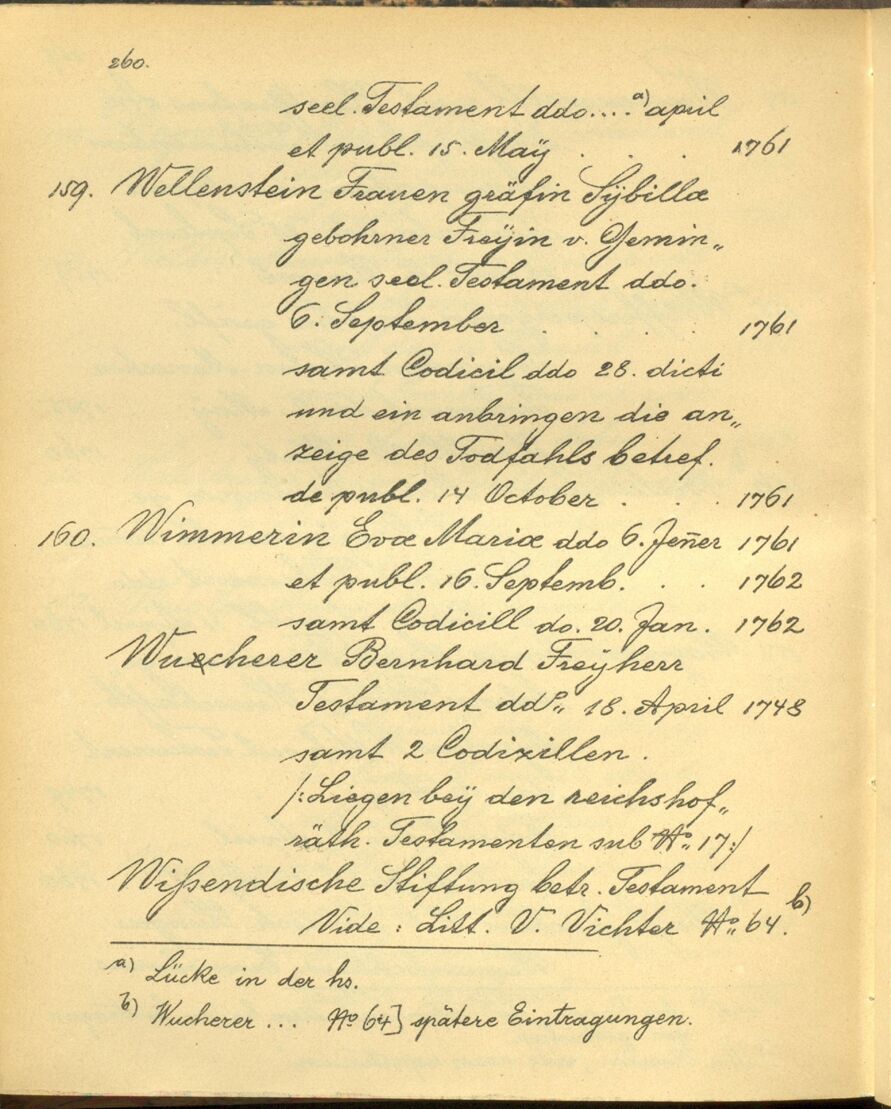 260.
seel. Testament ddo.... a) april
et publ. 15. Maÿ . . . 1761
159. Wellenstein Frauen gräfin Sÿbillæ
gebohrner Freÿin v. Gemin„
gen seel. Testament ddo.
6. September . . . . 1761
samt Codicil ddo 28. dicti
und ein anbringen die an„
zeige des Todfahls betref.
de publ. 14 October . . . 1761
160. Wimmerin Evæ Mariæ ddo 6. Jeñer 1761
et publ. 16. Septemb. . . 1762
samt Codicill do. 20. Jan. 1762
Wuccherer Bernhard Freÿherr
Testament dd°„ 18. April 1748
samt 2 Codizillen .
/: Liegen beÿ den reichshof„
räth. Testamenten sub N°„ 17 :/
Wißendische Stiftung betr. Testament
Vide : Litt. V. Vichter N°„ 64. b)
a) Lücke in der hs.
b) Wucherer ... N° 64] spätere Eintragungen.